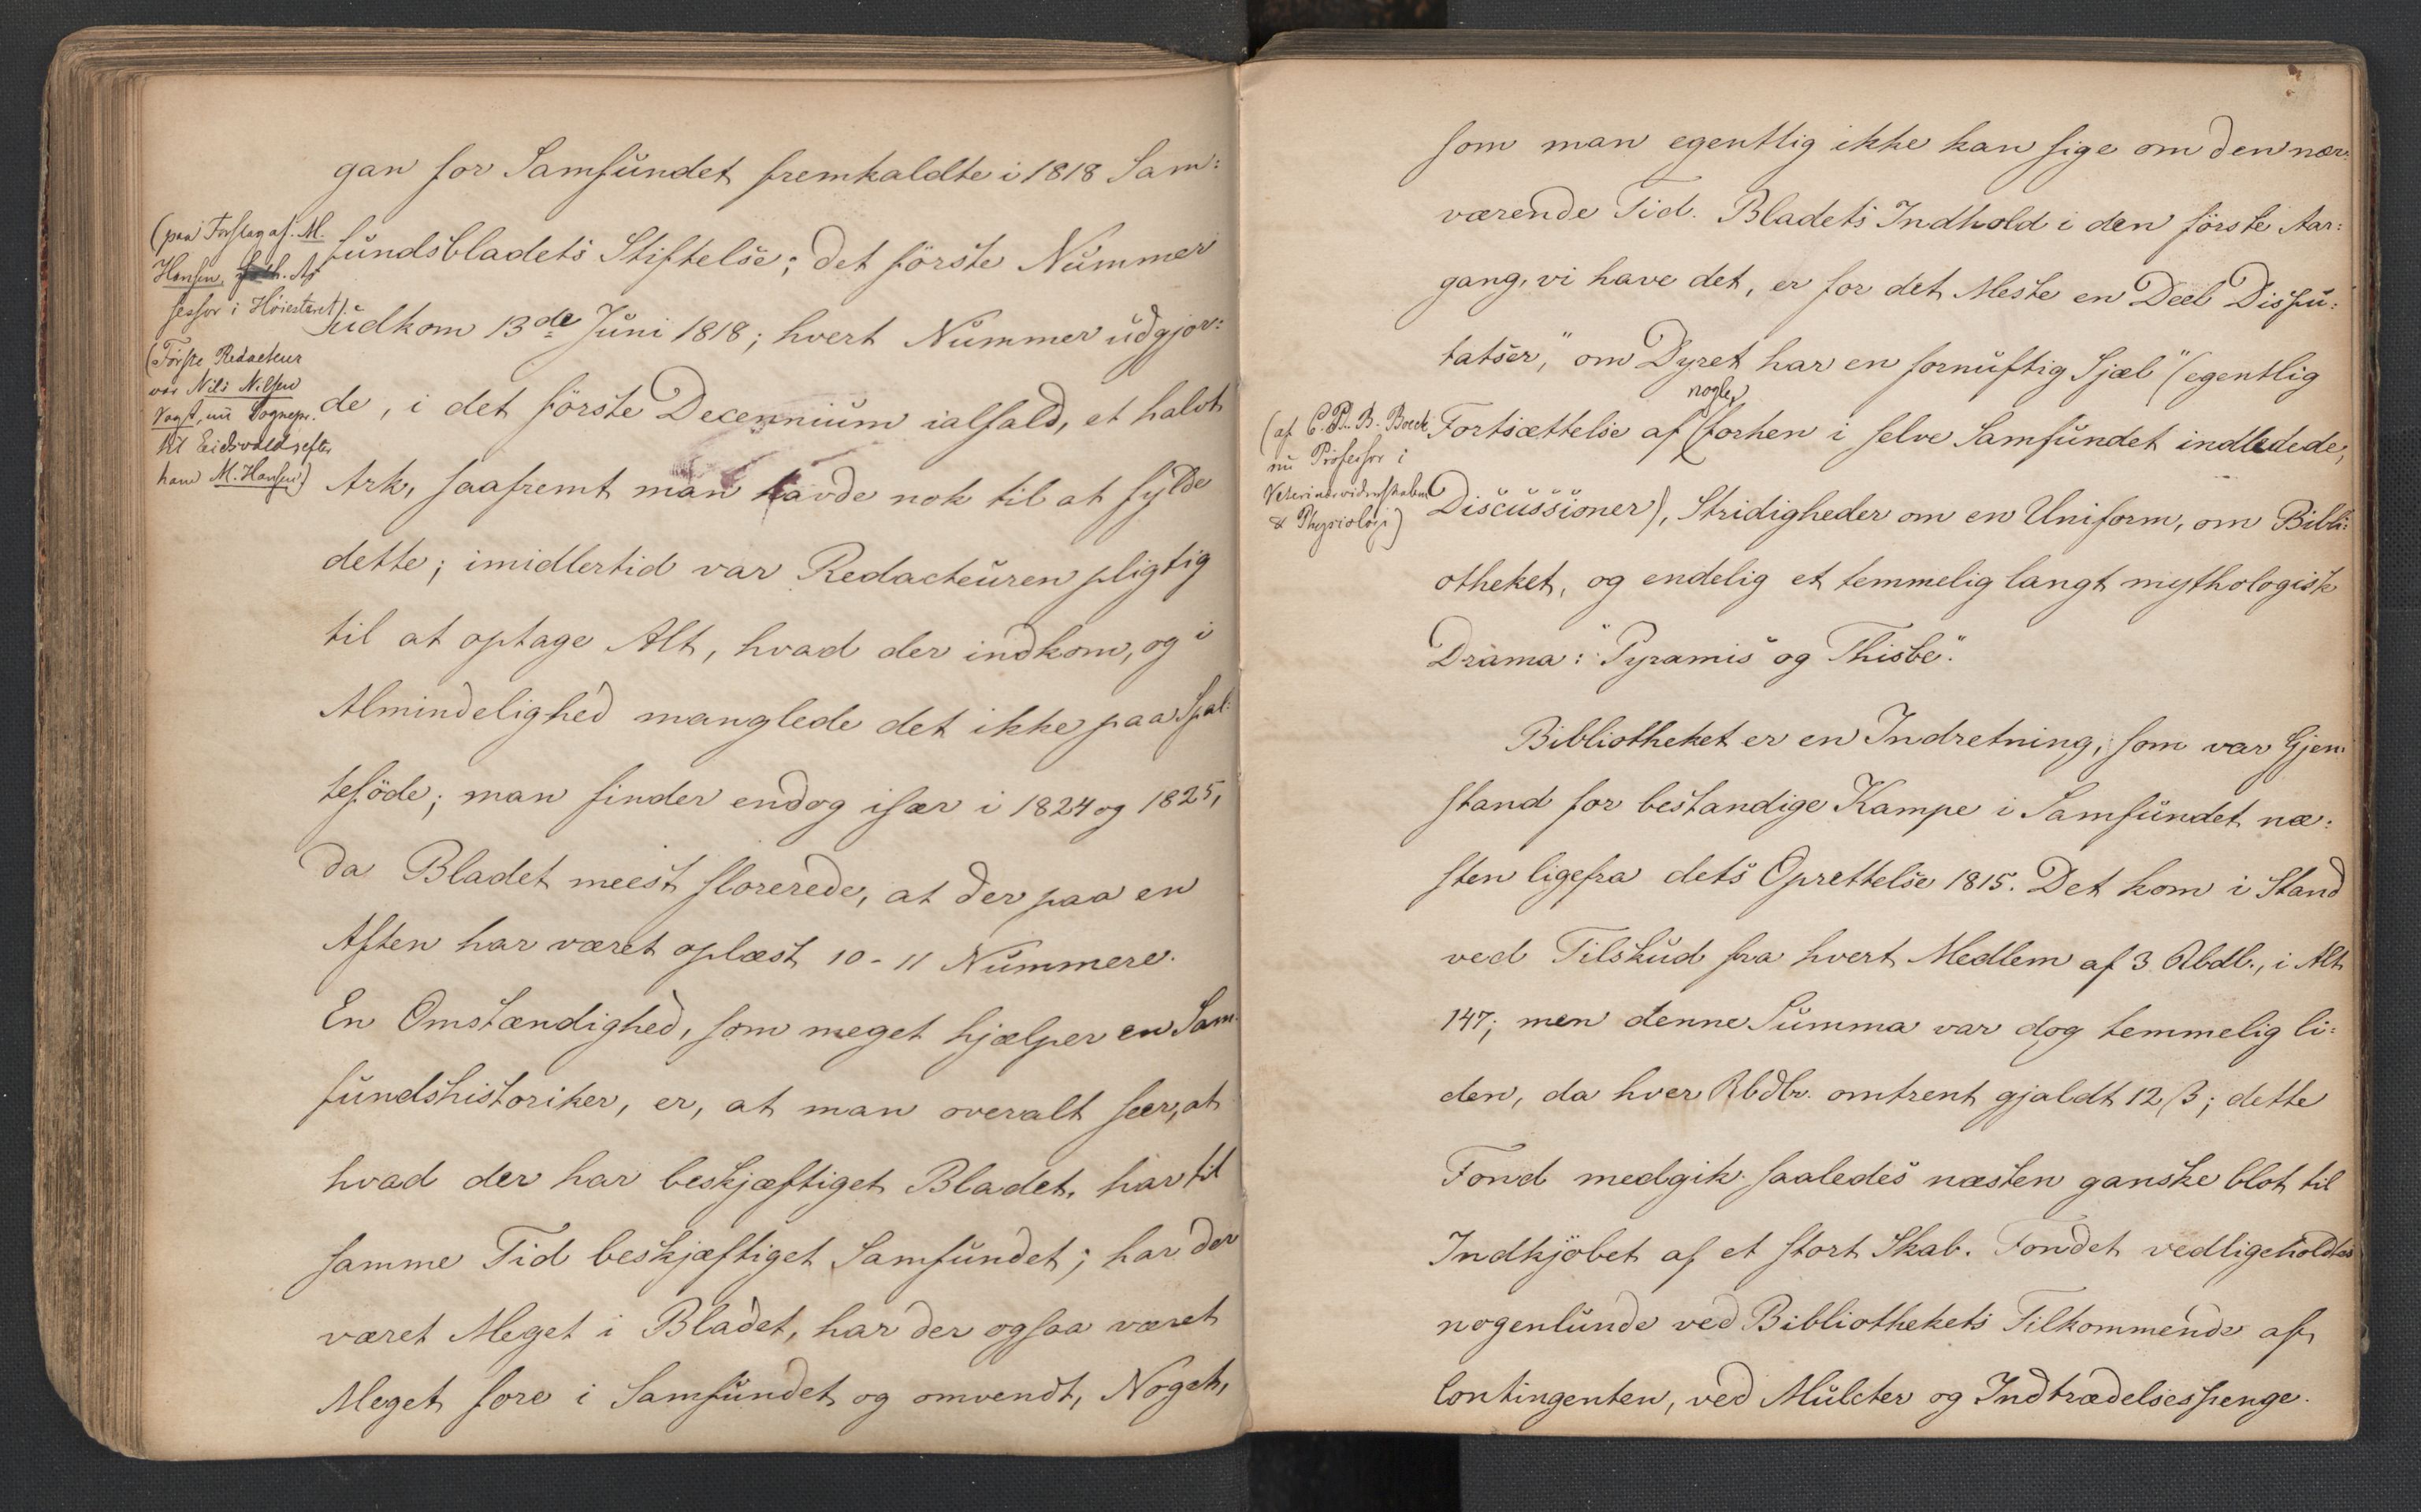 gan for Samfundet fremkaldte i 1818 Sam:
(paa Forslag af. M.
Hansen, As
sessor i Høiesteret)
fundsbladets Stiftelse; det förste Nummer
udkom 13de Juni 1818; hvert Nummer udgjor:
(Første Redacteur
var Nils Nilsen
Vogt, nu Sognepr.
til Eidsvold, efter
ham M. Hansen)
de, i det förste Decennium ialfald, et halvt
Ark, saafremt man havde nok til at fylde
dette; imidlertid var Redacteuren pligtig
til at optage Alt, hvad der indkom, og i
Almindelighed manglede det ikke paa Spal:
teföde; man finder endog især i 1824 og 1825,
da Bladet meest florerede, at der paa en
Aften har været oplæst 10-11 Nummere.
En Omstændighed, som meget hjælper en Sam
fundshistoriker, er, at man overalt seer, at
hvad der har beskjæftiget Bladet, har til
samme Tid beskjæftiget Samfundet; har der
været Meget i Bladet, har der ogsaa været
Meget fore i Samfundet og omvendt, Noget,
som man egentlig ikke kan sige om den nær:
værende Tid. Bladets Indhold i den förste Aar:
gang, vi have det, er for det Meste en Deel Dispu:
tatser, "om Dyret har en fornuftig Sjæl" (egentlig
nogle,
(af C. P. B. Boeck
nu Professor i
Veterinærvidenskaben
& Physiologi)
Fortsættelse af forhen i selve Samfundet indledede,
Discussioner), Stridigheder om en Uniform, om Bibli:
otheket, og endelig et temmelig langt mythologisk
Drama: "Pyramis og Thisbe".
Bibliotheket er en Indretning, som var Gjen:
stand for bestandige Kampe i Samfundet næ:
sten ligefra dets Oprettelse 1815. Det kom i Stand
ved Tilskud fra hvert Medlem af 3 Rbdlr., i Alt
147; men denne Summa var dog temmelig li:
den, da hver Rbdlr. omtrent gjaldt 12 ß; dette
Fond medgik saaledes næsten ganske blot til
Indkjöbet af et stort Skab. Fondet vedligeholdtes
nogenlunde ved Bibliothekets Tilkommende af
Contingenten, ved Mulcter og Indtrædelsespenge.